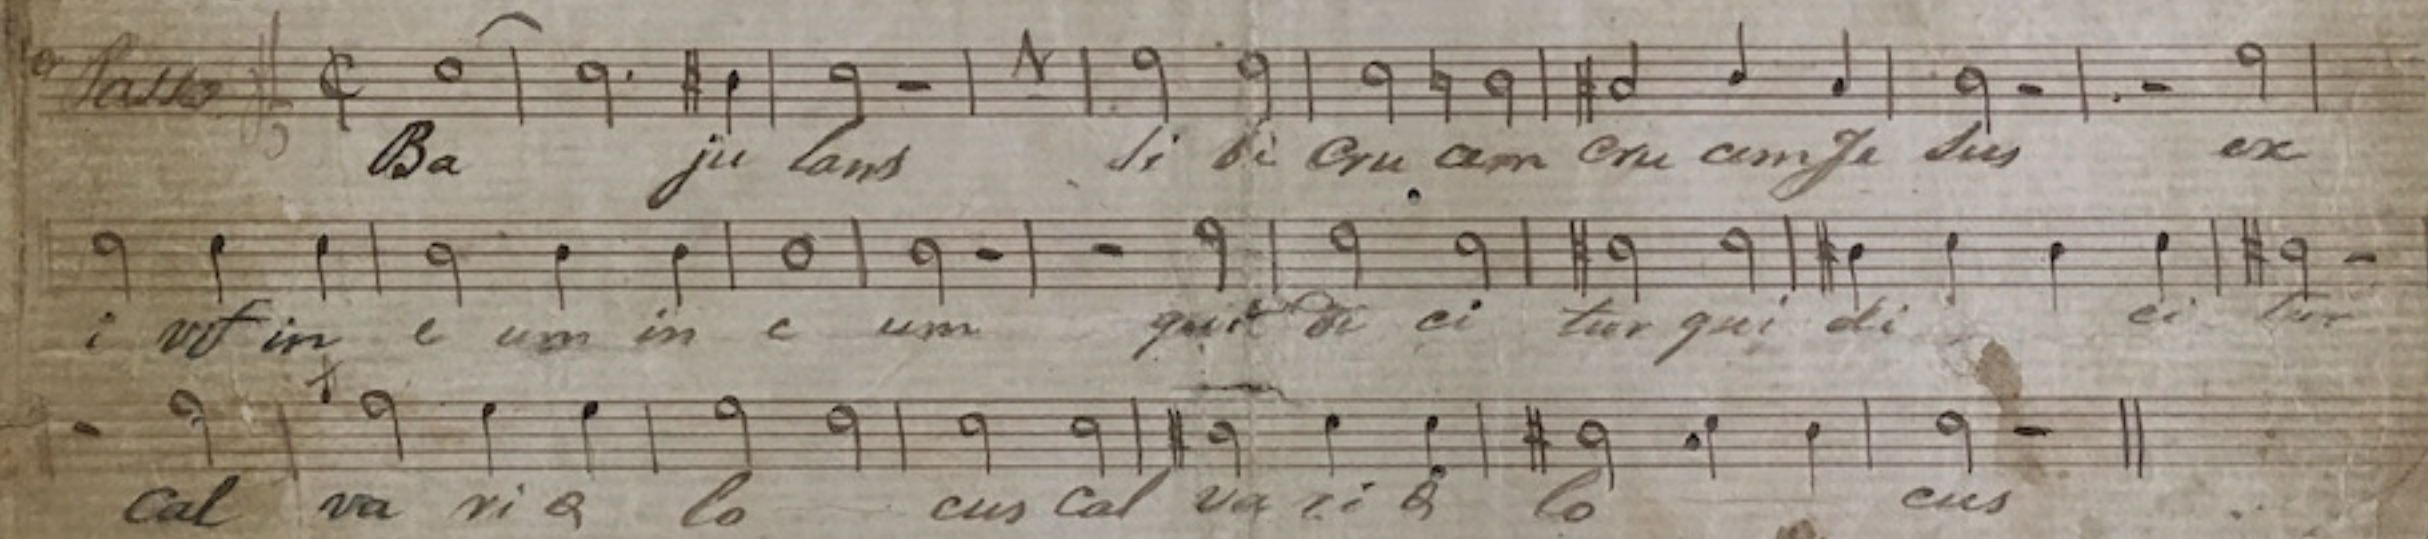 Basso
Ba ju lans si bi Cru cem cru cem Je sus ex
i vit in e um in e um quit di ci tur qui di ci tur
Cal va ri a lo cus Cal va ri a lo cus